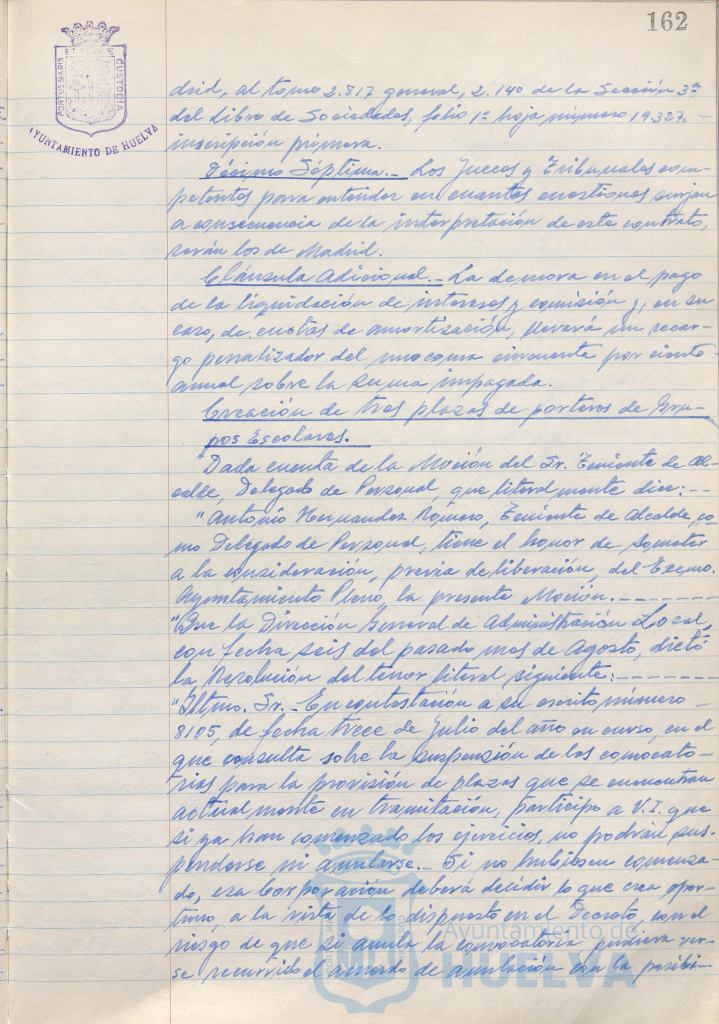 162
PORTUS MARIS ET TERRAE CUSTODIA
AYUNTAMIENTO DE HUELVA
drid, al tomo 2.817 general, 2.140 de la Sección 3ª
del Libro de Sociedades, folio 1º hoja número 19.327.-
inscripción primera.
Décimo Séptima.- Los Jueces y Tribunales com-
petentes para entender en cuantas cuestiones surjan
a consecuencia de la interpretación de este contrato,
serán los de Madrid.
Cláusula Adicional.- La demora en el pago
de la liquidación de intereses y comisión y, en su
caso, de cuotas de amortización, llevará un recar-
go penalizador del uno coma cincuenta por ciento
anual sobre la suma impagada.
Creación de tres plazas de porteros de Gru-
pos Escolares.-
Dada cuenta de la Moción del Sr. Teniente de Al-
calde, Delegado de Personal, que literalmente dice:--
"Antonio Hernandez Romero, Teniente de Alcalde, co-
mo Delegado de Personal, tiene el honor de someter
a la consideración, previa deliberación, del Excmo.
Ayuntamiento Pleno la presente Moción.-------
"Que la Dirección General de Administración Local,
con fecha seis del pasado mes de Agosto, dictó
la Resolución del tenor literal siguiente:------
"Iltmo. Sr.- En contestación a su escrito número -
8105, de fecha trece de Julio del año en curso, en el
que consulta sobre la suspensión de las convocato-
rias para la provisión de plazas que se encuentran
actualmente en tramitación, participo a V.I. que
si ya han comenzado los ejercicios, no podrán sus-
penderse ni anularse.- Si no hubiesen comenza-
do, esa Corporación deberá decidir lo que crea opor-
tuno, a la vista de lo dispuesto en el Decreto, con el
riesgo de que si anula la convocatoria pudiera ver-
se recurrido el acuerdo de anulación con la posibi-
Ayuntamiento de
HUELVA